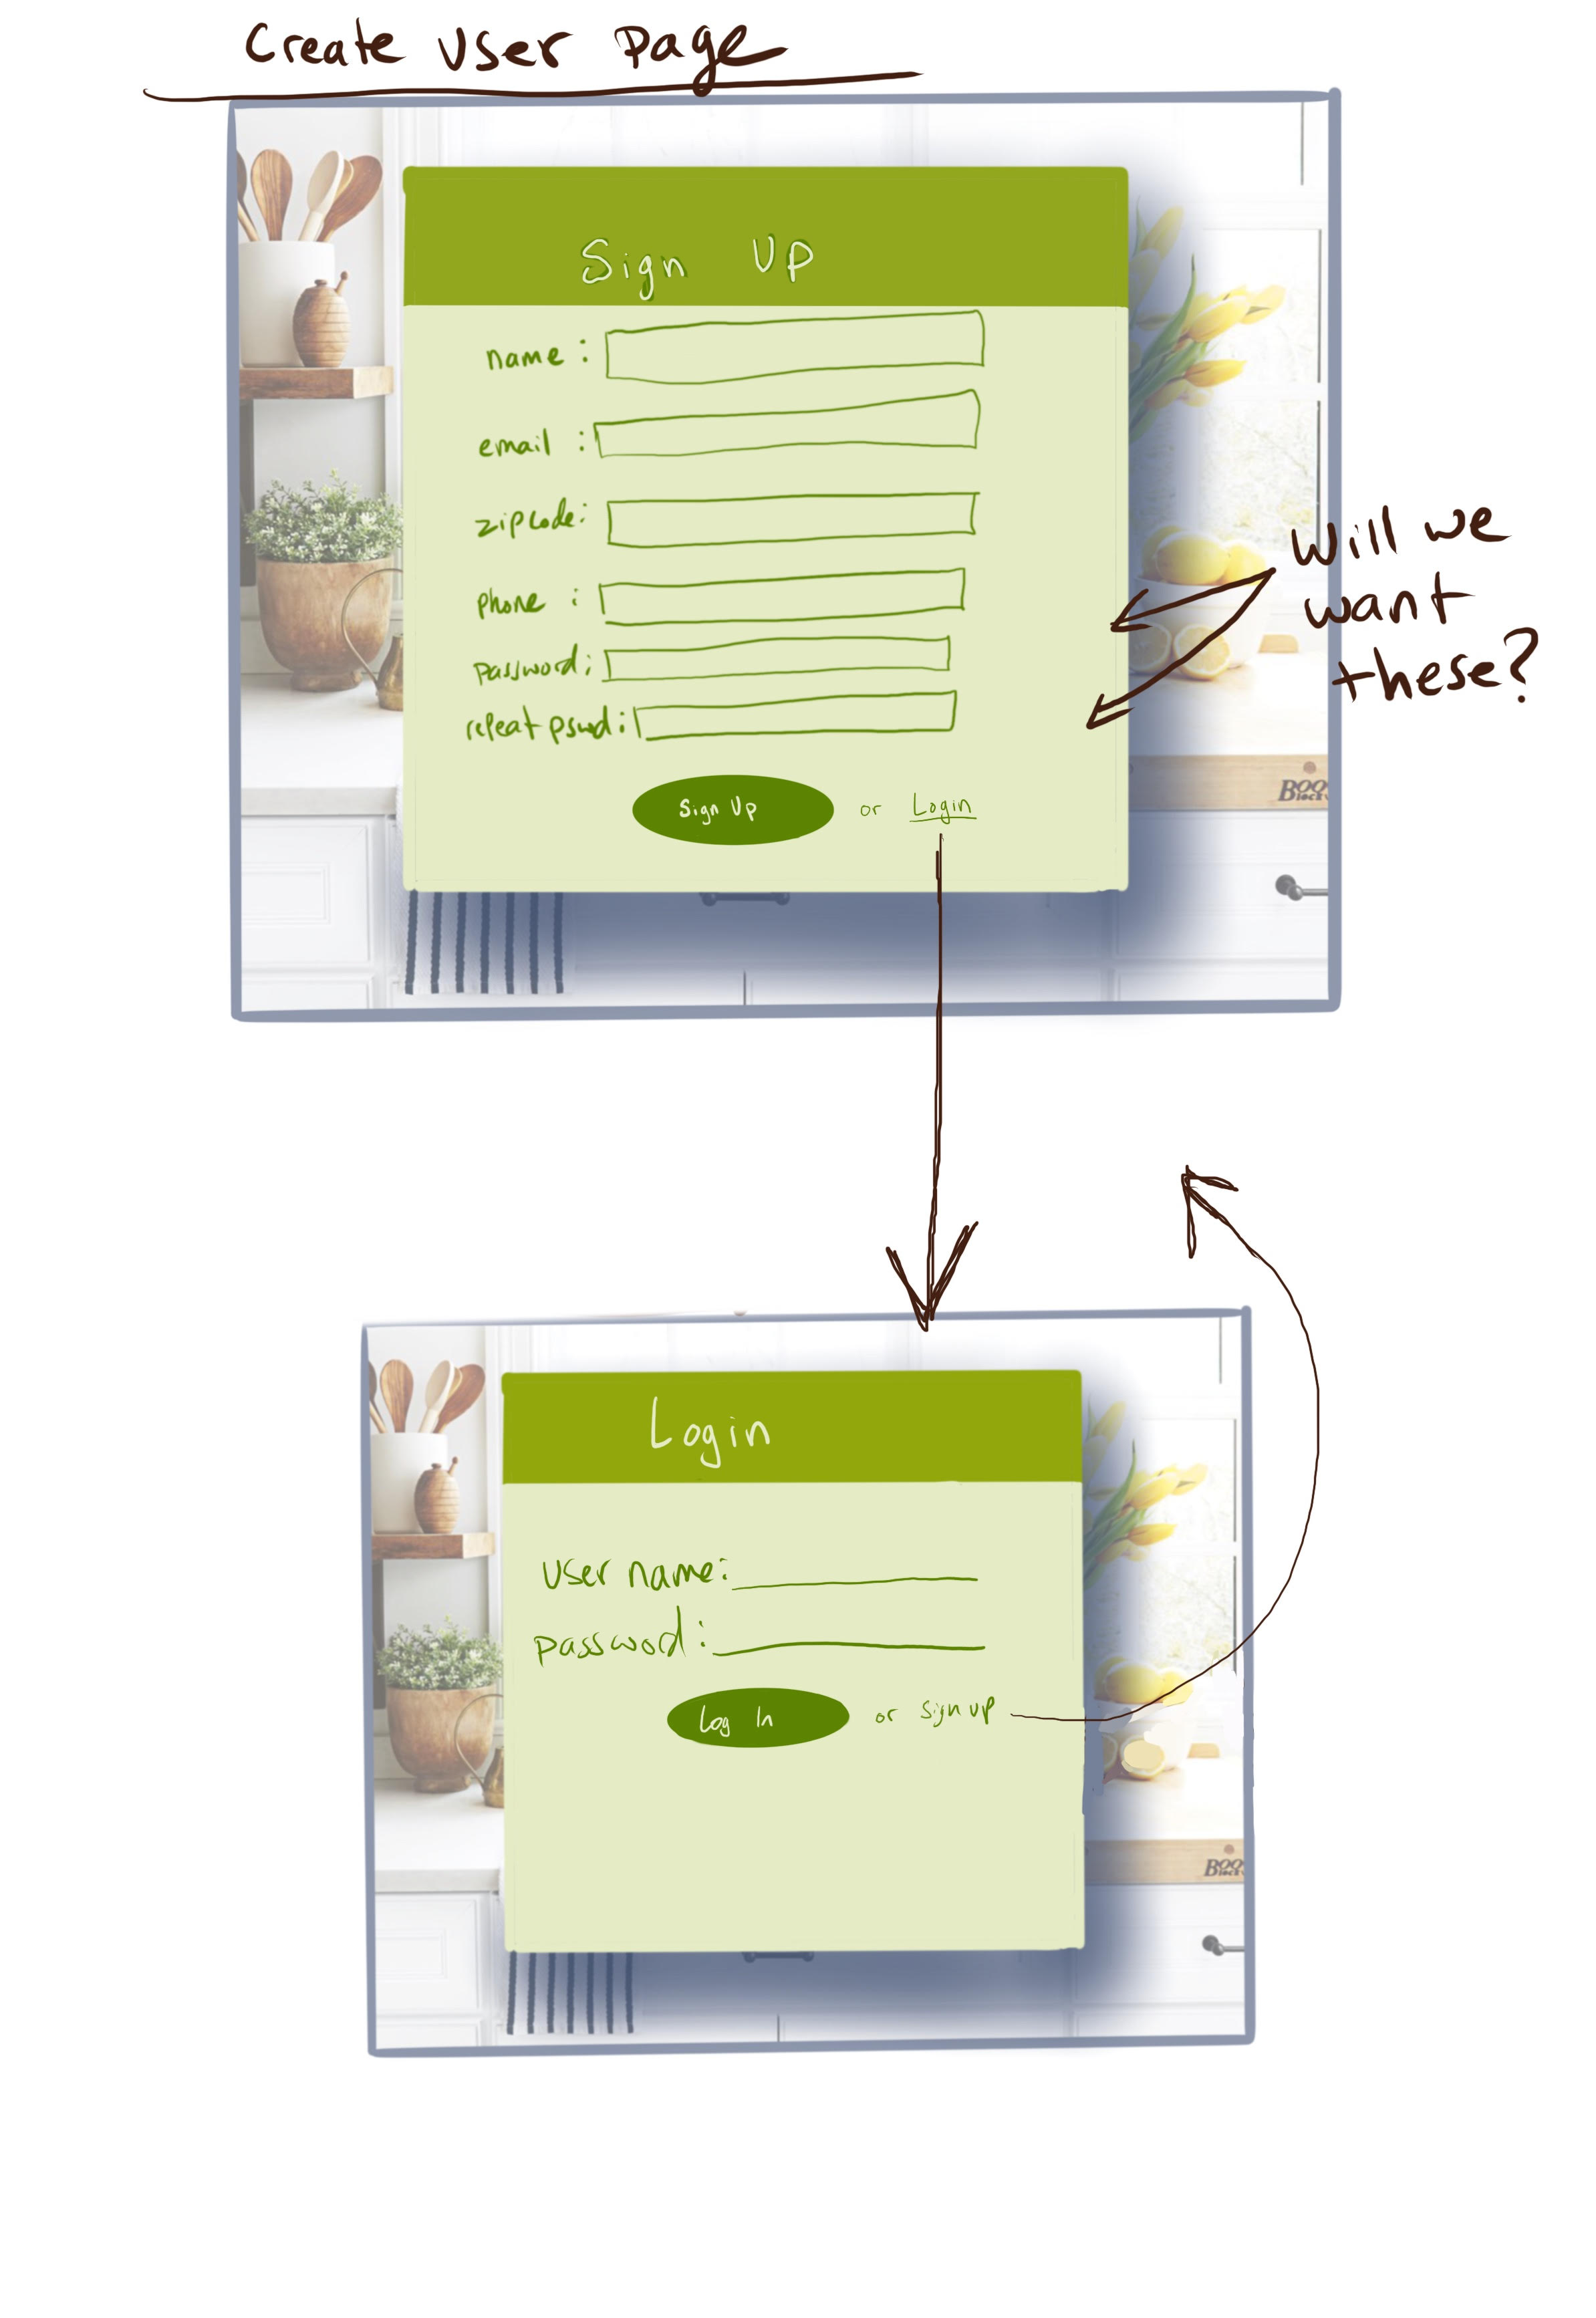 Create User Page
Sign Up
name :
email :
zipcode:
phone :
password:
repeat pswd:
Sign Up or Login
Will we
want
these?
BOO
Block
Login
User name:
password:
Log In or sign up
BOO
Block